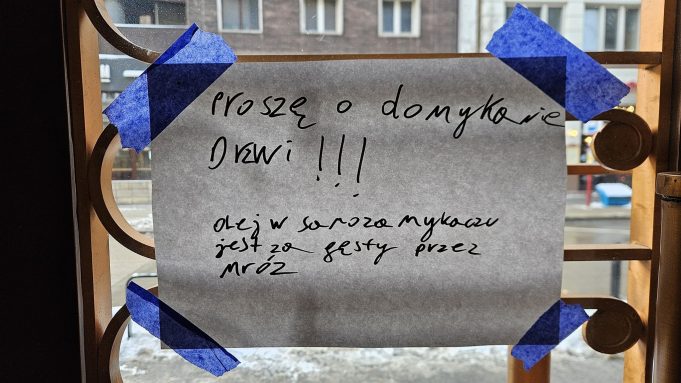 Proszę o domykanie
Drzwi !!!
olej w samozamykaczu
jest za gęsty przez
mróz